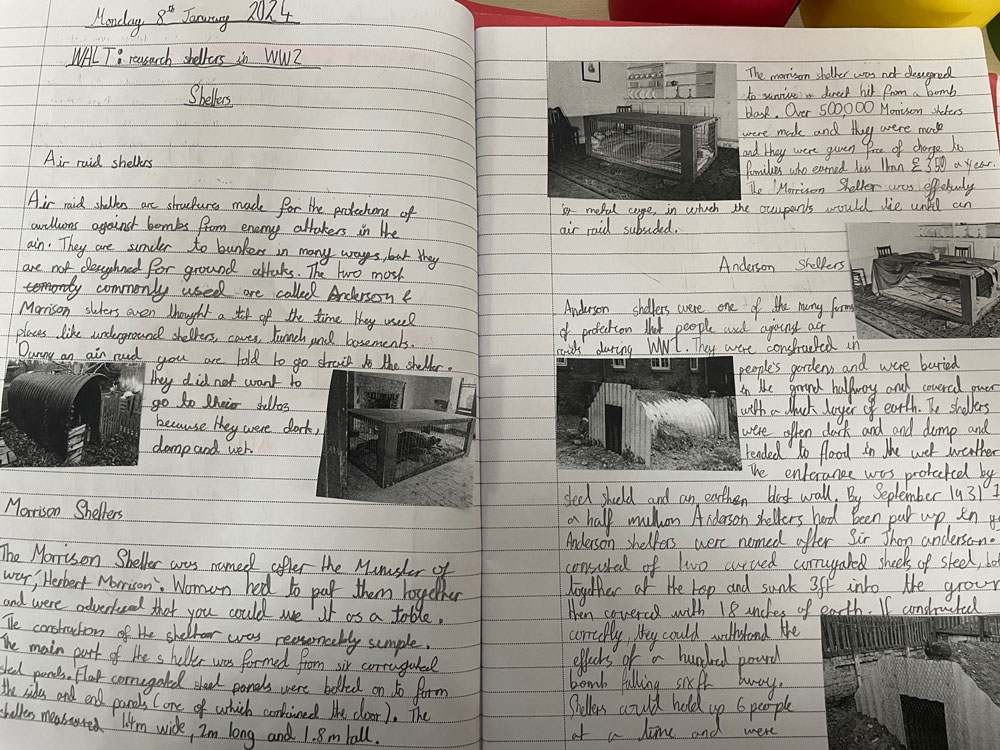 Monday 8th January 2024
WALT: reasearch shelters in WW2
Shelters
Air raid shelters
Air raid shelters are structures made for the protections of
avillians against bombs from enemy attakers in the
air. They are simaler to bunkers in many ways, but they
are not desighned for ground attaks. The two most
comonly commonly used are called Anderson &
Morrison sluters even thought a lot of the time they used
places like underground shelters, caves, tunnels and basements.
During an air raid you are told to go strait to the shelter.
they did not want to
go to their
because they were dark,
damp and wet.
Morrison Shelters
The Morrison Shelter was named after the Minister of
war, 'Herbert Morrison'. Women had to put them together
and were advertised that you could use it as a table.
The construction of the sheltear was reasonebly simple.
The main part of the sheller was formed from six corrugated
steel panels. Flat corrugated steel panels were bolted on to form
the sides and end panels (one of which contained the door). The
shelter measured 1.4m wide, 2m long and 1.8m tall.
The morrison shelter was not designed
to survive a direct hit from a bomb
blast. Over 500,000 Morrison
were made and they were made
and they were given free of charge to
families who earned less than £350 a year.
The 'Morrison Shelter was
metal cage, in which the ocupants would lie until an
air raid subsided.
Anderson Shelters
Anderson shelters were one of the many forms
of protection that people used against air
raids during They were constructed in
people's gardens and were buried
in the ground halfway and covered over
with a thick layer of earth. The shelters
were often dark and and damp and
tended to flood in the wet weather
The enterance was protected by
steel shield and an earthen blast wall. By September 1931 1
a half million Anderson shelters had been put up in
Anderson shelters were named after Sir Jhon anderson.
consisted of two curved corrugated sheets of steel,
together at the top and sunk 3ft into the groun
then covered with 18 inches of earth. If constructed
correctly, they could withstand the
effects of a hundred pound
bomb falling six ft away.
Shelters could hold up 6 people
at a time and were